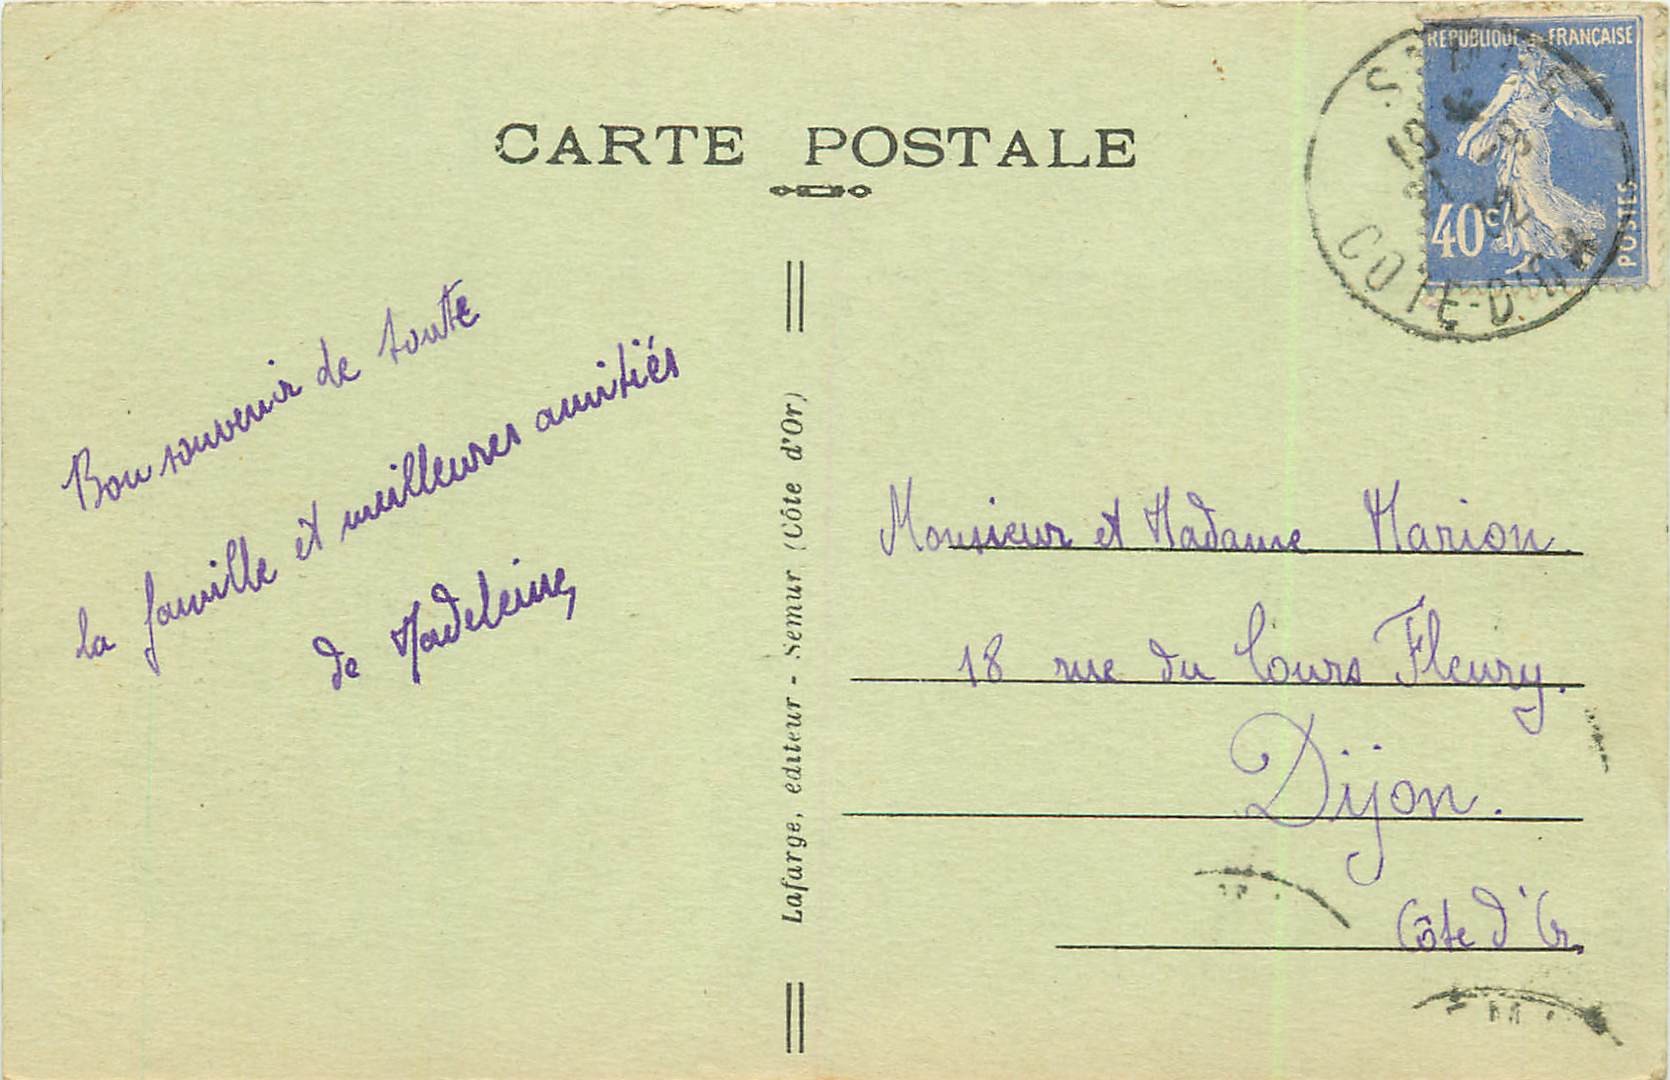 CARTE POSTALE
RÉPUBLIQUE FRANÇAISE
40c
POSTES
CÔTE-D'OR
Bon souvenir de toutte
la famille et meilleures amitiés
de Madeleine,
Lafarge, éditeur - Semur (Côte d'Or)
Monsieur et Madame Marion.
18 rue du Cours Fleury.
Dijon.
Côte d'Or.